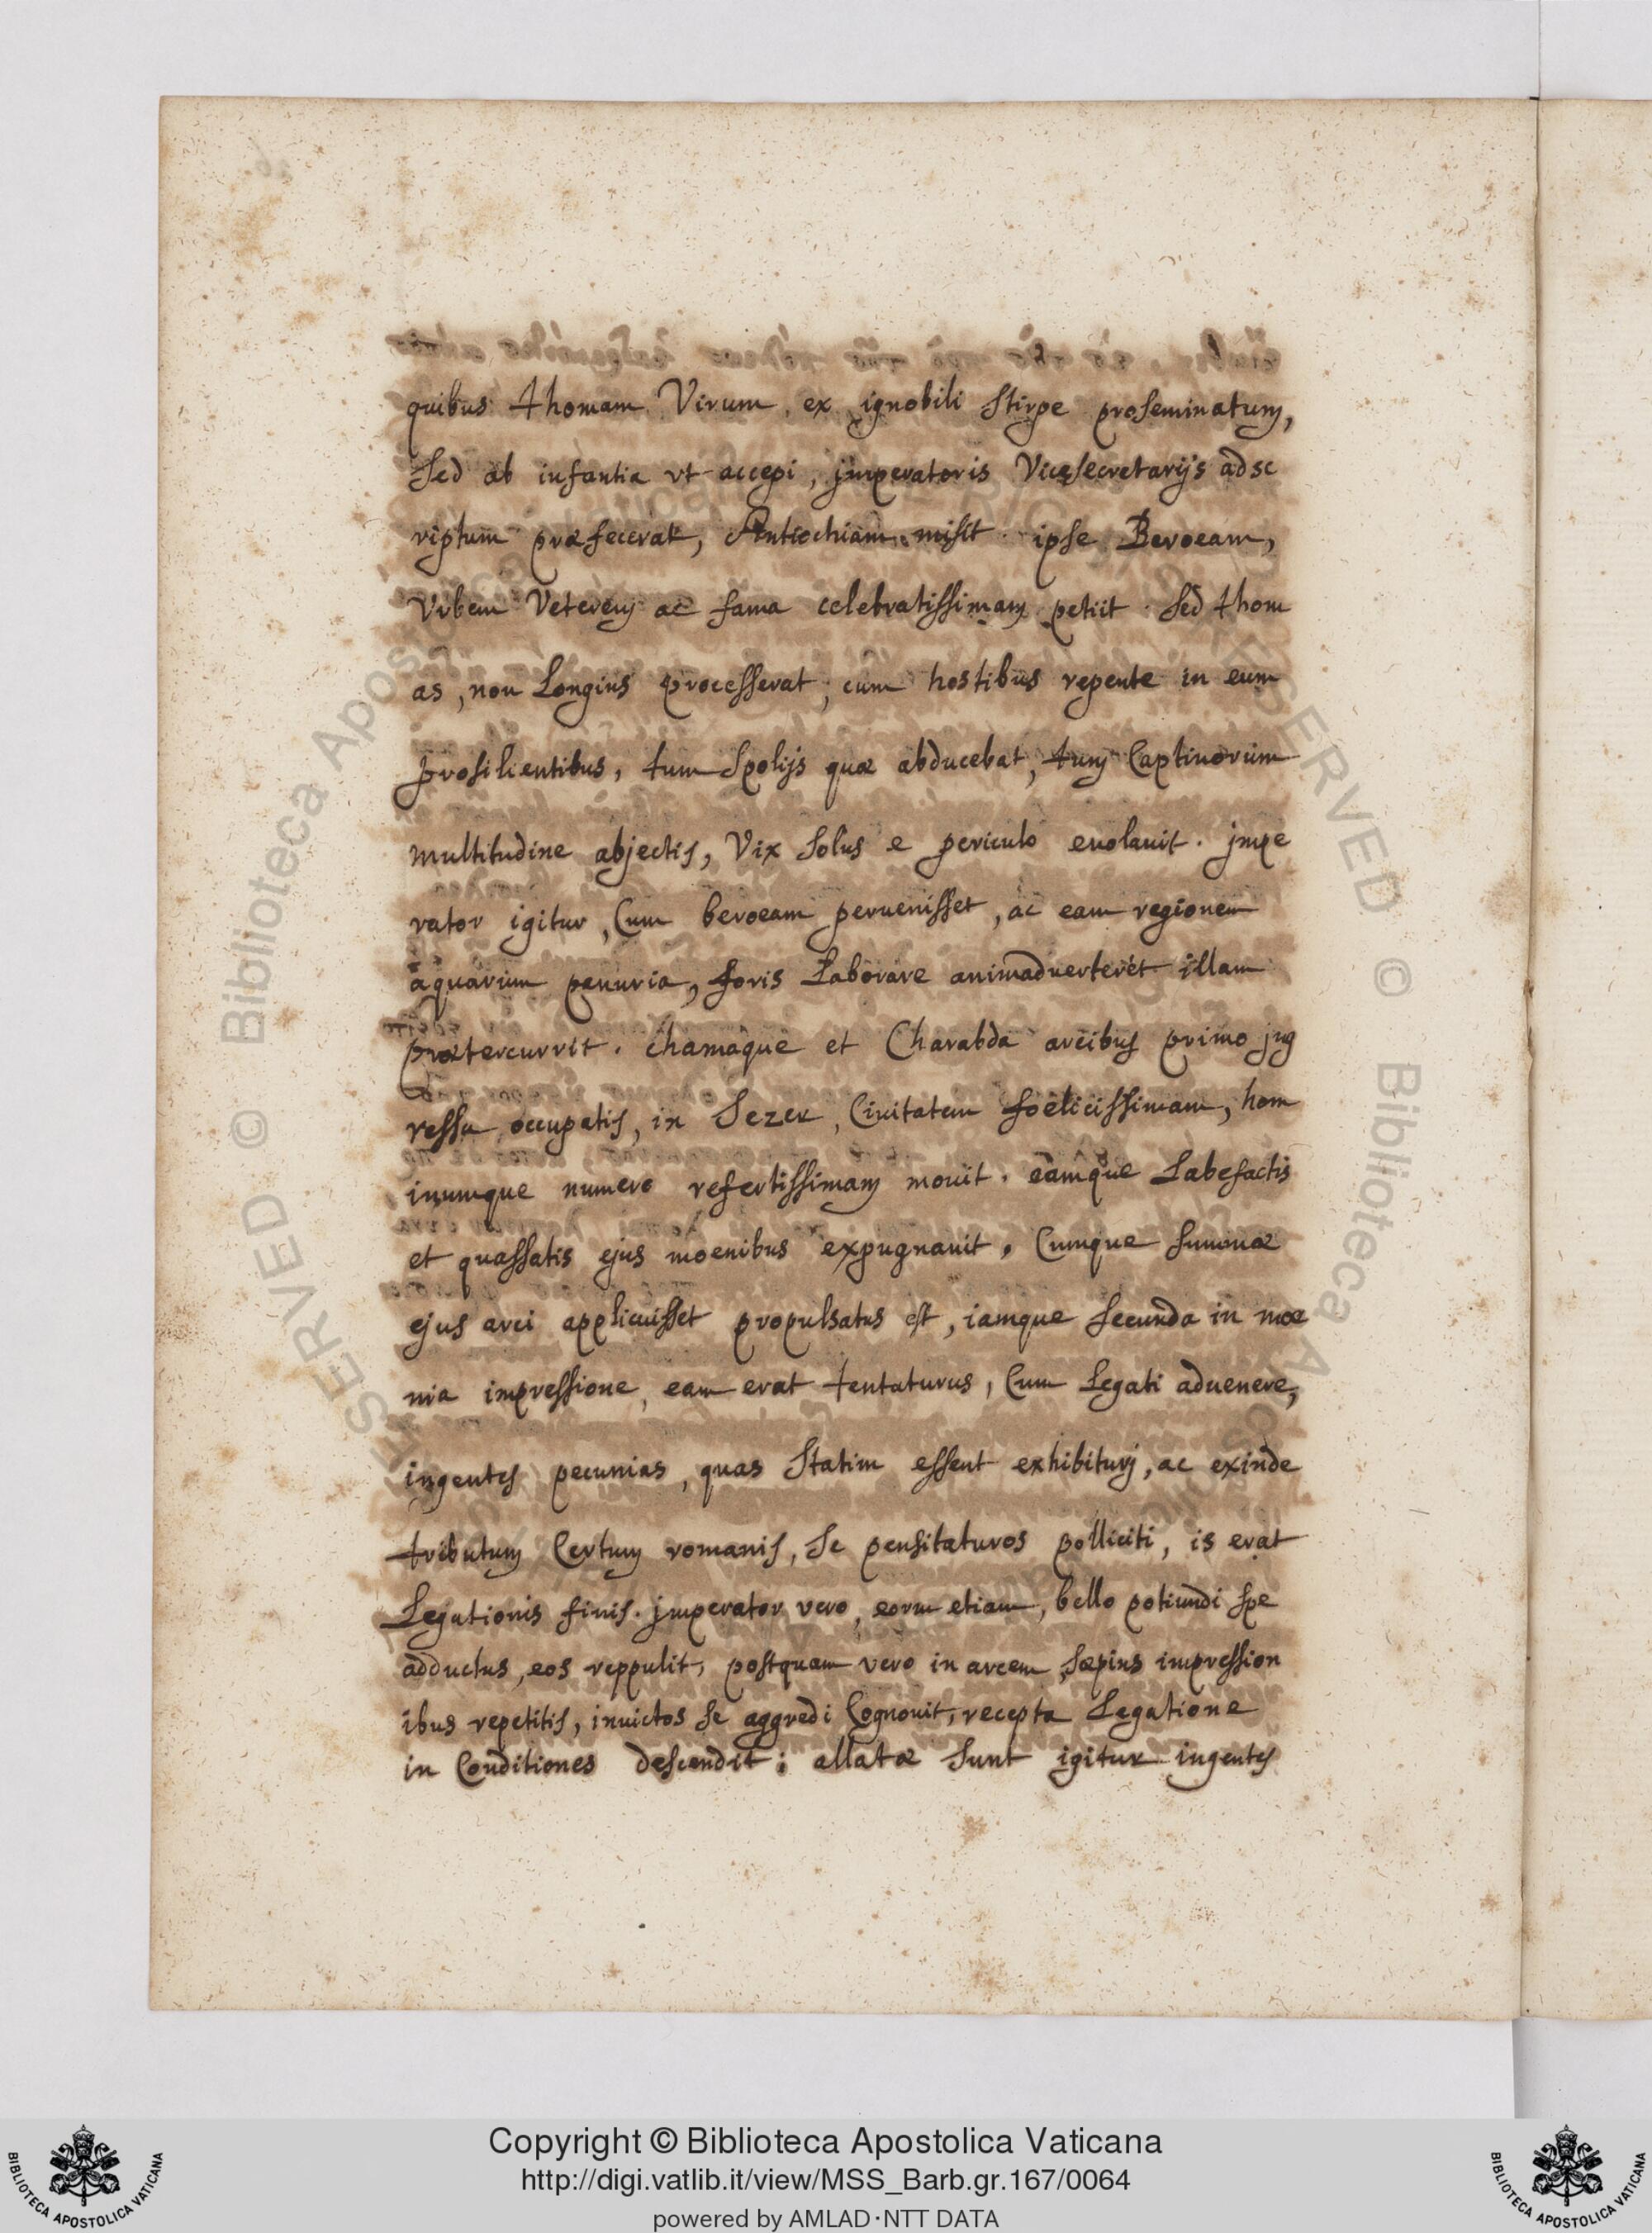 quibus thomam Virum ex ignobili stirpe proseminatum,
sed ab infantia vt accepi, jmperatoris Vicesecretarijs adsc
riptum præfecerat, Antiochiam misit. ipse Beroeam,
Vrbem Veterem ac fama celebratissimam petiit. sed thom
as, non Longius processerat, cum hostibus repente in eum
prosilientibus, tum spolijs quæ abducebat, tum Captiuorum
multitudine abjectis, Vix solus e periculo euolauit. jmpe
rator igitur, Cum beroeam peruenisset, ac eam regionem
aquarum penuria, foris Laborare animaduerteret illam
prætercurrit. chamaque et Charabda arcibus primo jng
ressu occupatis, in Sezer, Ciuitatem foelicissimam, hom
inumque numero refertissimam mouit. eamque Labefactis
et quassatis ejus moenibus expugnauit. Cumque summæ
ejus arci applicuisset propulsatus est, iamque secunda in moe
nia impressione, eam erat tentaturus, Cum Legati aduenere,
ingentes pecunias, quas statim essent exhibiturj, ac exinde
tributum Certum romanis, se pensitaturos polliciti, is erat
Legationis finis. jmperator vero, eorum etiam, bello potiundi spe
adductus, eos reppulit, postquam vero in arcem, sæpius impression
ibus repetitis, inuictos se aggredi Cognouit, recepta Legatione
in Conditiones descendit; allatæ sunt igitur ingentes
Copyright © Biblioteca Apostolica Vaticana
http://digi.vatlib.it/view/MSS_Barb.gr.167/0064
powered by AMLAD·NTT DATA